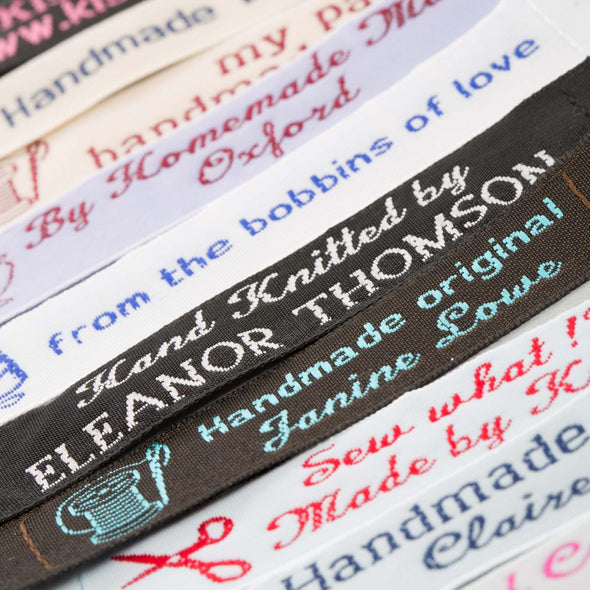 Handmade
my
handma
By Homemade
Oxford
from the bobbins of love
Hand Knitted by
ELEANOR THOMSON
Handmade original
Janine Lowe
Sew what !
Made by K
Handmade
Claire